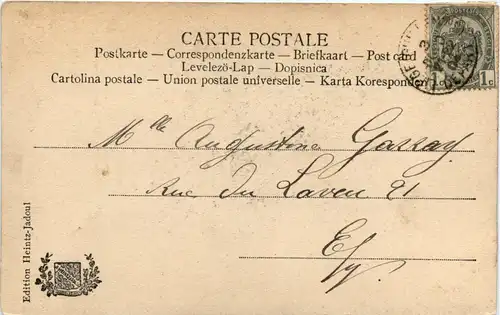 CARTE POSTALE
Postkarte — Correspondenzkarte — Briefkaart — Post card
Levelezö-Lap — Dopisnica
Cartolina postale — Union postale universelle — Karta Korespon
1c 1c
Mlle Augustine
Rue Du Laveu 91
E/y.
Edition Heintz-Jadoul